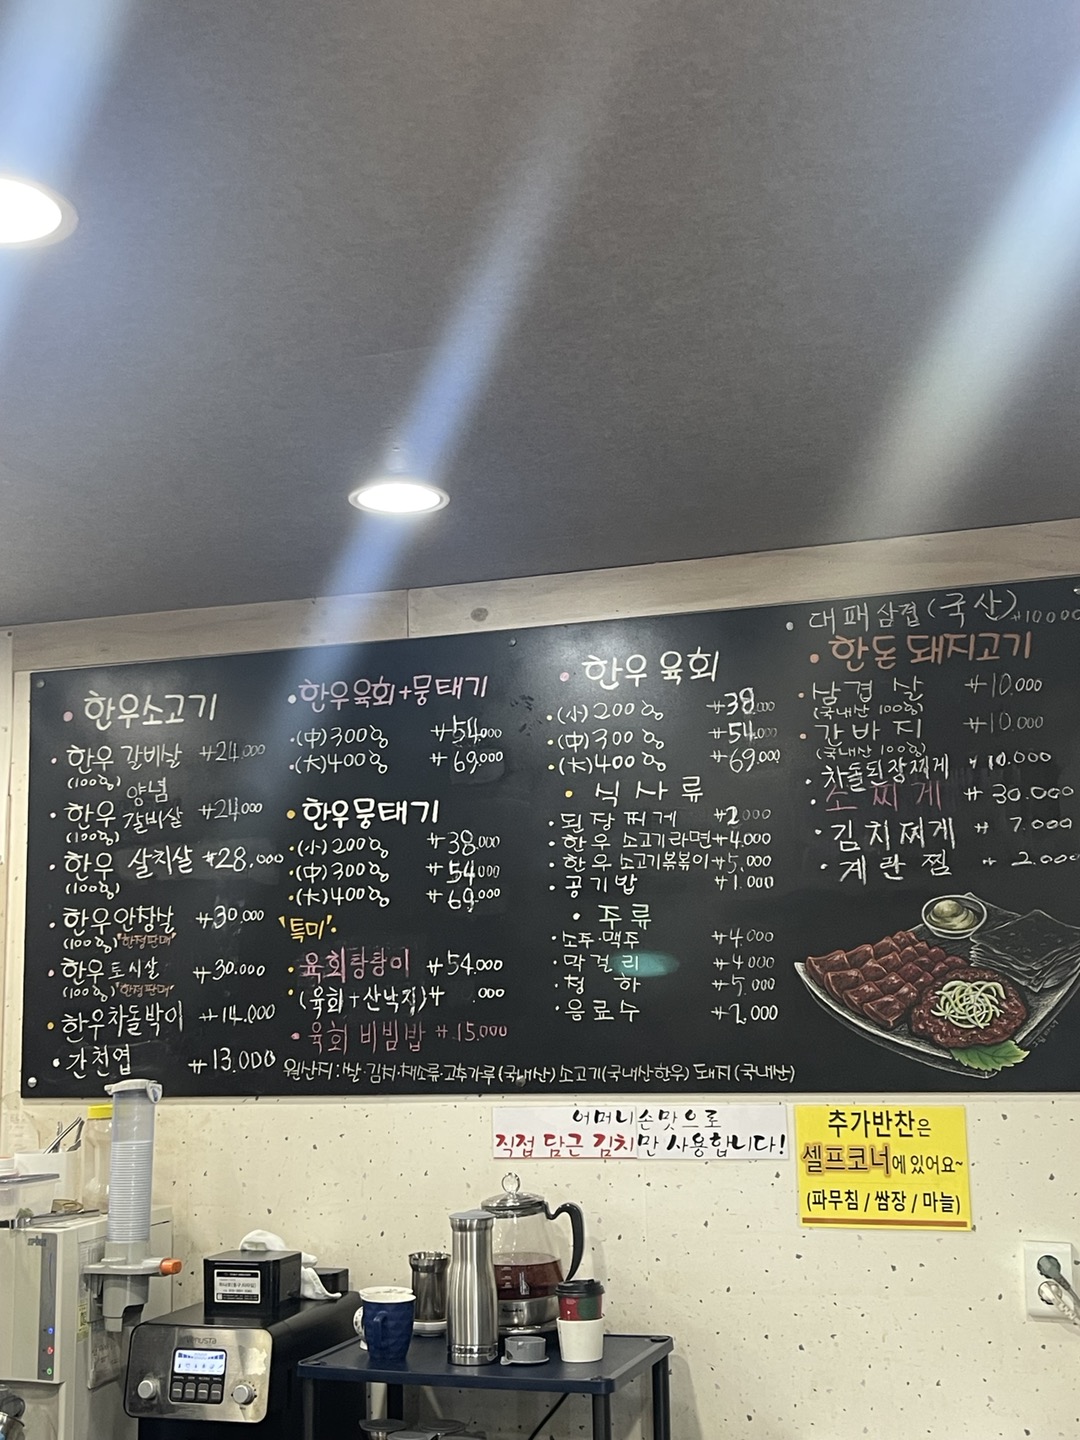 한우소고기
한우 갈비살 ₩24.000
(100g)
한우 양념갈비살 ₩24.000
(100g)
한우 살치살 ₩28.000
(100g)
한우 안창살 ₩30.000
(100g) "한정판매"
한우 토시살 ₩30.000
(100g) "한정판매"
한우차돌박이 ₩14.000
간천엽 ₩13.000
한우육회+뭉태기
(中)300g ₩54.000
(大)400g ₩69.000
한우뭉태기
(小)200g ₩38.000
(中)300g ₩54.000
(大)400g ₩69.000
"특미"
육회탕탕이 ₩54.000
(육회+산낙지) ₩ .000
육회 비빔밥 ₩15.000
한우 육회
(小)200g ₩38.000
(中)300g ₩54.000
(大)400g ₩69.000
식사류
된장찌게 ₩2.000
한우 소고기라면 ₩4.000
한우 소고기볶음이 ₩5.000
공기밥 ₩1.000
주류
소주·맥주 ₩4.000
막걸리 ₩4.000
청하 ₩5.000
음료수 ₩2.000
대패삼겹(국산) ₩10000
한돈돼지고기
삼겹살 ₩10.000
(국내산 100g)
간바지 ₩10.000
(국내산 100g)
차돌된장찌게 ₩10.000
소찌게 ₩30.000
김치찌게 ₩7.000
계란찜 ₩2.000
원산지:쌀·김치·채소류·고추가루(국내산)소고기(국내산한우)돼지(국내산)
어머니손맛으로
직접 담근 김치만 사용합니다!
추가반찬은
셀프코너에 있어요~
(파무침 / 쌈장 / 마늘)